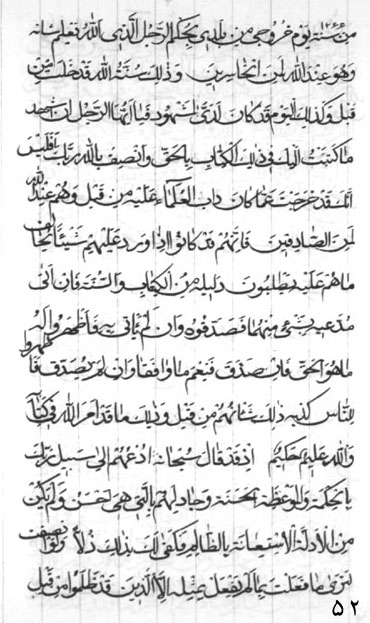 من سنة يوم خروجي من بلدي بحكم الرجل الذي الله يعلم انه
وهو عند الله لمن الخاسرين وذلك سنة الله قد خلت من
قبل وكذلك اليوم قد كان لدى المشهود فيا ايها الرجل ان تشهد
ما كتبت اليك في ذلك الكتاب بالحق وانصف بالله ربك افليس
انك قد خرجت عما كان داب العلماء عليه من قبل وهو عند الله
لمن الصادقين فانهم قد كانوا اذا ورد عليهم شيئا يخالف
ما هم عليه يطلبون دليله من الكتاب والسنة فان اتى
مدعيه بشئ منهما فصدقوه وان لم يات به فاظهروا له
ما هو الحق فان صدق فنعم ما وافقا وان لم يصدق فاظهروا
للناس كذبه ذلك شانهم من قبل وذلك ما قد امر الله في كتابه
والله عليم حكيم اذ قد قال سبحانه ادعهم الى سبيل ربك
بالحكمة والموعظة الحسنة وجادلهم بالتي هي احسن ولم يكن
من الادلة الاستعانة بالظالم وكفى لك بذلك ذلا ولو انصفت
لترى ما فعلت ما لم يفعل بمثله الا الذين قد ظلموا من قبل
۵۲